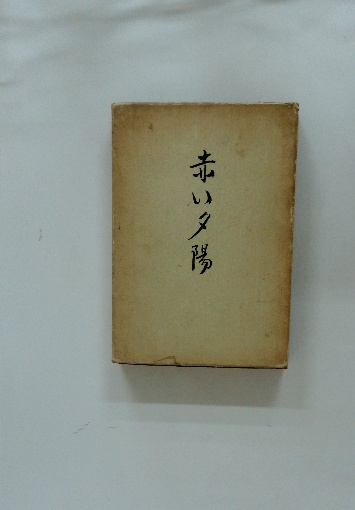 赤い夕陽